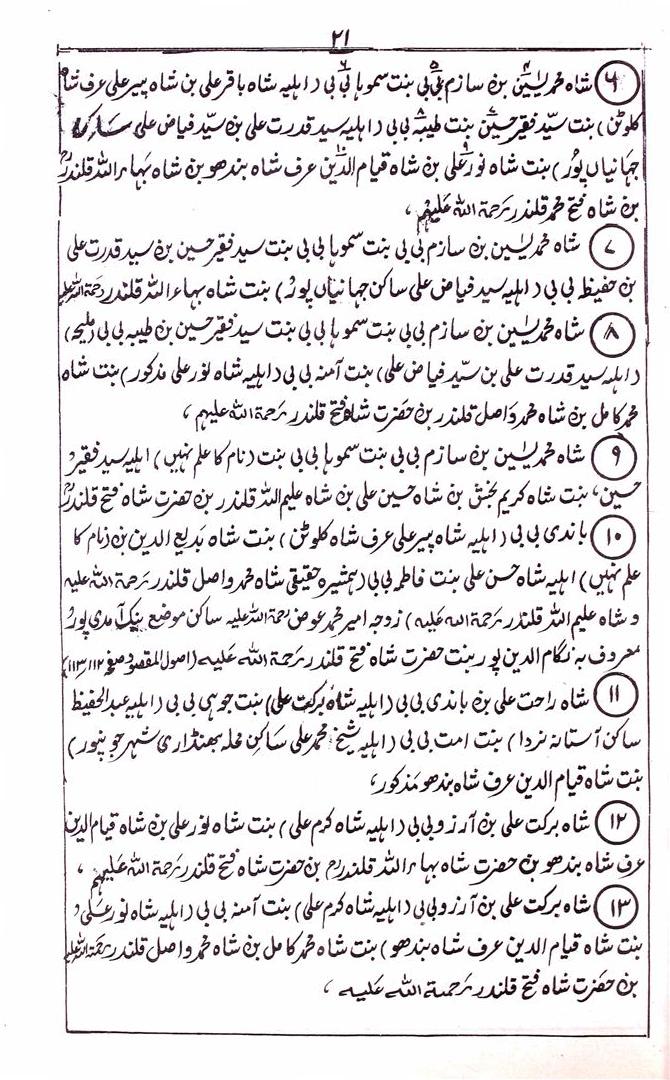 ۲۱
۶ شاہ محمد یٰسین بن سازم بی بی بنت سموہا بی بی (اہلیہ شاہ باقر علی بن شاہ پیر علی عرف شاہ
کلوٹن) بنت سیّد فقیر حسین بنت طیبہ بی بی (اہلیہ سید قدرت علی بن سیّد فیاض علی ساکن
جہانیاں پور) بنت شاہ نور علی بن شاہ قیام الدین عرف شاہ بندھو بن شاہ بہاء اللہ قلندرؒ
بن شاہ فتح محمد قلندر رحمۃ اللہ علیہم ،
۷ شاہ محمد یٰسین بن سازم بی بی بنت سموہا بی بی بنت سید فقیر حسین بن سید قدرت علی
بن حفیظ بی بی (اہلیہ سید فیاض علی ساکن جہانیاں پور) بنت شاہ بہاء اللہ قلندر رحمۃ اللہ علیہ
۸ شاہ محمد یٰسین بن سازم بی بی بنت سموہا بی بی بنت سید فقیر حسین بن طیبہ بی بی (ملیحہ)
(اہلیہ سید قدرت علی بن سیّد فیاض علی) بنت آمنہ بی بی (اہلیہ شاہ نور علی مذکور) بنت شاہ
محمد کامل بن شاہ محمد واصل قلندر بن حضرت شاہ فتح قلندر رحمۃ اللہ علیہم ،
۹ شاہ محمد یٰسین بن سازم بی بی بنت سموہا بی بی بنت (نام کا علم نہیں) اہلیہ سید فقیر
حسین، بنت شاہ کریم بخش بن شاہ حسین علی بن شاہ علیم اللہ قلندر بن حضرت شاہ فتح قلندرؒ
۱۰ باندی بی بی (اہلیہ شاہ پیر علی عرف شاہ کلوٹن) بنت شاہ بدیع الدین بن (نام کا
علم نہیں) اہلیہ شاہ حسن علی بنت فاطمہ بی بی (ہمشیرہ حقیقی شاہ محمد واصل قلندر رحمۃ اللہ علیہ
و شاہ علیم اللہ قلندر رحمۃ اللہ علیہ) زوجہ امیر محمد عوض رحمۃ اللہ علیہ ساکن موضع آمدی پور
معروف بہ نگام الدین پور بنت حضرت شاہ فتح قلندر رحمۃ اللہ علیہ (اصول المقصود صفحہ ۱۱۲، ۱۱۳)
۱۱ شاہ راحت علی بن باندی بی بی (اہلیہ شاہ برکت علی) بنت جوہی بی بی (اہلیہ عبد الحفیظ
ساکن آستانہ نردا) بنت امت بی بی (اہلیہ شیخ محمد علی ساکن محلہ بھنڈاری شہر جونپور)
بنت شاہ قیام الدین عرف شاہ بندھو مذکور،
۱۲ شاہ برکت علی بن آرزو بی بی (اہلیہ شاہ کرم علی) بنت شاہ نور علی بن شاہ قیام الدین
عرف شاہ بندھو بن حضرت شاہ بہاء اللہ قلندرؒ بن حضرت شاہ فتح قلندر رحمۃ اللہ علیہم ،
۱۳ شاہ برکت علی بن آرزو بی بی (اہلیہ شاہ کرم علی) بنت آمنہ بی بی (اہلیہ شاہ نور علی
بنت شاہ قیام الدین عرف شاہ بندھو) بنت شاہ محمد کامل بن شاہ محمد واصل قلندر رحمۃ اللہ علیہ
بن حضرت شاہ فتح قلندر رحمۃ اللہ علیہ ،